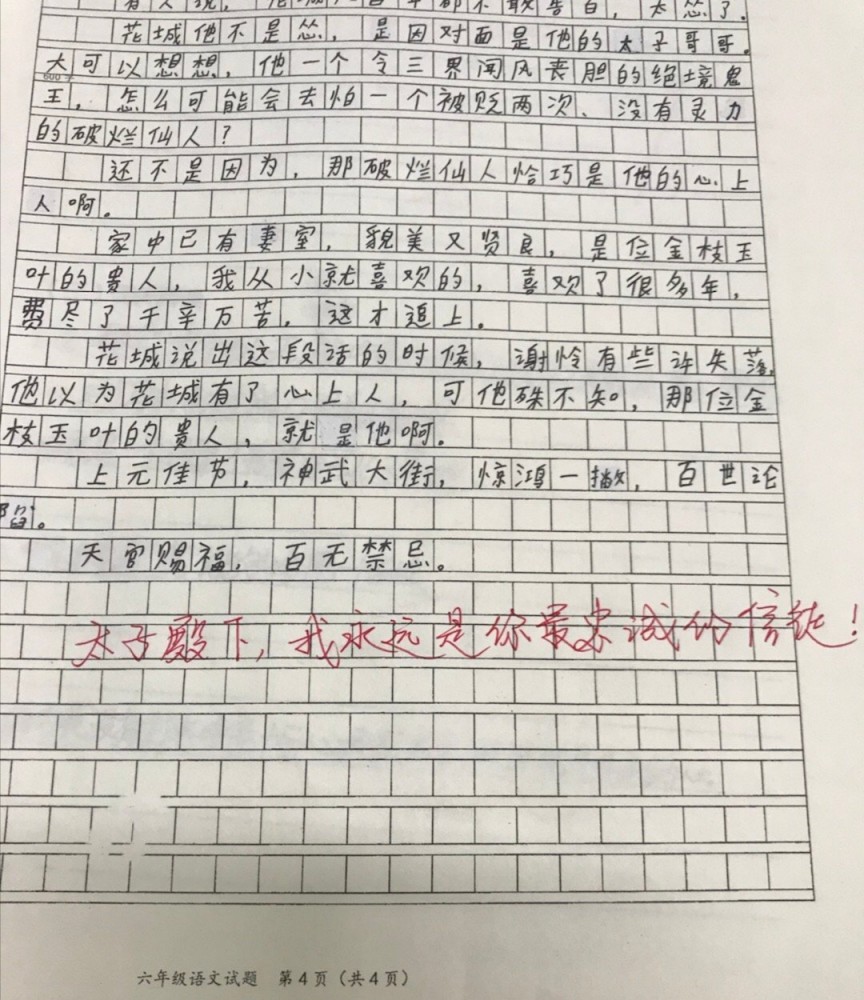 有人说，花城八百年都不敢告白，太怂了。
花城他不是怂，是因对面是他的太子哥哥。
大可以想想，他一个令三界闻风丧胆的绝境鬼
600字
王，怎么可能会去怕一个被贬两次、没有灵力
的破烂仙人？
还不是因为，那破烂仙人恰巧是他的心上
人啊。
家中已有妻室，貌美又贤良，是位金枝玉
叶的贵人，我从小就喜欢的，喜欢了很多年，
费尽了千辛万苦，这才追上。
花城说出这段话的时候，谢怜有些许失落，
他以为花城有了心上人，可他殊不知，那位金
枝玉叶的贵人，就是他啊。
上元佳节，神武大街，惊鸿一撇，百世沦
陷。
天官赐福，百无禁忌。
太子殿下，我永远是你最忠诚的信徒！
六年级语文试题 第4页（共4页）